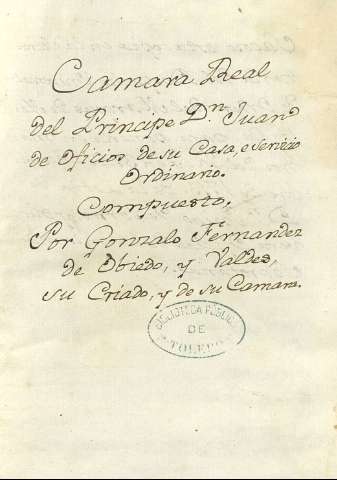 Camara Real
del Principe Dn. Juan
de oficios de su Casa, e servicio
Ordinario.
Compuesto,
Por Gonzalo Férnandez
de Obiedo, y Valdes,
su Criado, y de su Camara.
BIBLIOTECA PÚBLICA
DE
TOLEDO